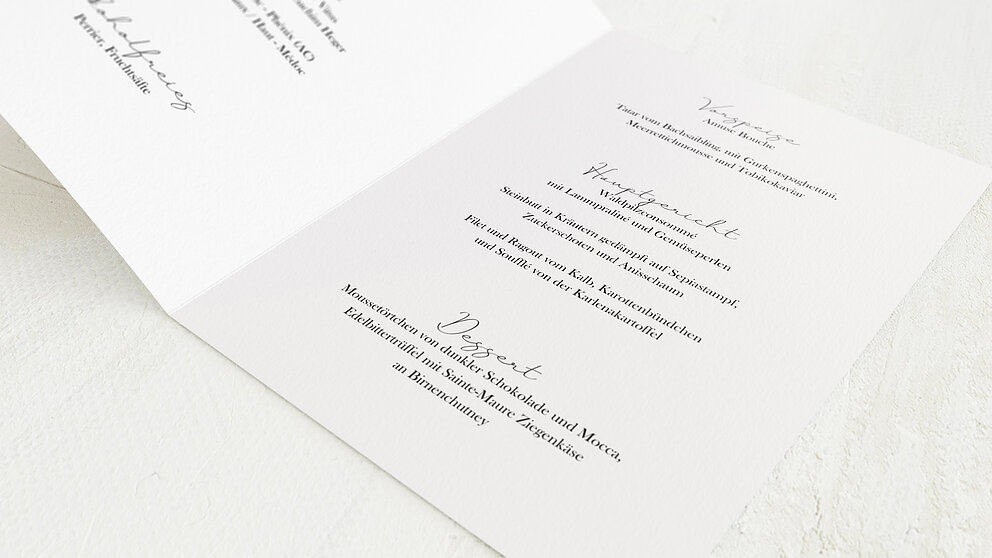 Wines
Joachim Heger
- Phénix (AC)
/ Haut - Médoc
Alkoholfreies
Perrier, Fruchtsäfte
Vorspeise
Amuse Bouche
Tatar vom Bachsaibling, mit Gurkenspaghettini,
Meerrettichmousse und Tobikokaviar
Hauptgericht
Waldpilzconsommé
mit Lammpraliné und Gemüseperlen
Steinbutt in Kräutern gedämpft auf Sepiastampf,
Zuckerschoten und Anisschaum
Filet und Ragout vom Kalb, Karottenbündchen
und Soufflé von der Karlenakartoffel
Dessert
Moussetörtchen von dunkler Schokolade und Mocca,
Edelbittertrüffel mit Sainte-Maure Ziegenkäse
an Birnenchutney